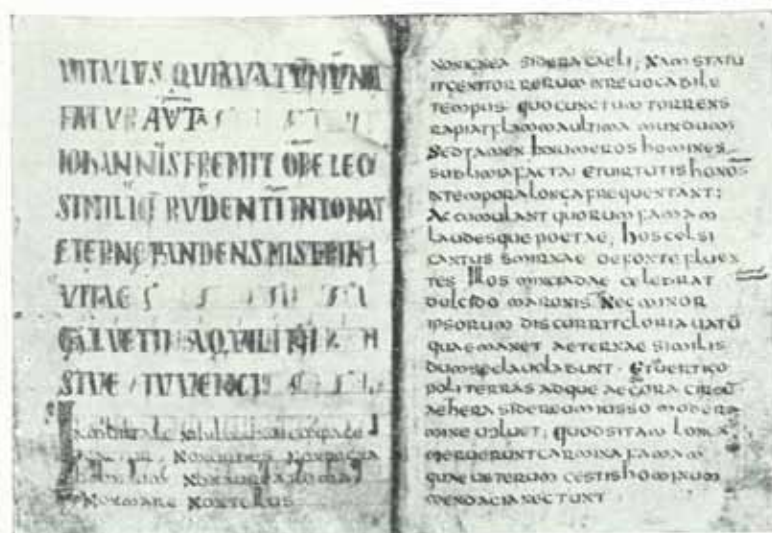 VITULUS QUIA VATŪ
FATUR
IOHANNIS FREMIT ORE LEO
SIMILIS RUDENTI INTONAT
ETERNE PANDENS MISTERIA
VITAE
G. VETTI AQUILINI
SIVE IUVENCI
Inmortale nihil mundi compage
tenetur non orbis non regna
hominum non aurea roma
non mare non tellus
non ignea sidera caeli; nam statu
it genitor rerum inrevocabile
tempus quo cunctum torrens
rapiat flamma ultima mundum
Sed tamen innumeros homines
sublimia facta et uirtutis honos
in tempora longa frequentant;
Accumulant quorum famam
laudesque poetae, hos celsi
cantus smirnae de fonte fluen
tes hos minciadae celebrat
dulcido maronis Nec minor
ipsorum discurrit gloria uatū
quae manet aeternae similis
dum secla uolabunt Et uertigo
poli terras adque aecora circū
aehera sidereum iusso modera
mine uoluet; quod si tam longa
meruerunt carmina famam
quae ueterum gestis hominum
mendacia nectunt